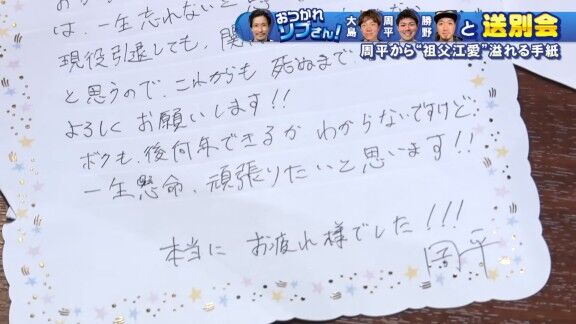 おつかれ
ソブさん!
大島
周平
勝野
と
送別会
周平から“祖父江愛”溢れる手紙
は一生忘れないと
現役引退しても、関
と思うので、これからも 死ぬまで
よろしく お願いします!!
ボクも、後何年できるか わからないですけど、
一生懸命、頑張りたいと思います!!
本当に お疲れ様でした!!!
周平